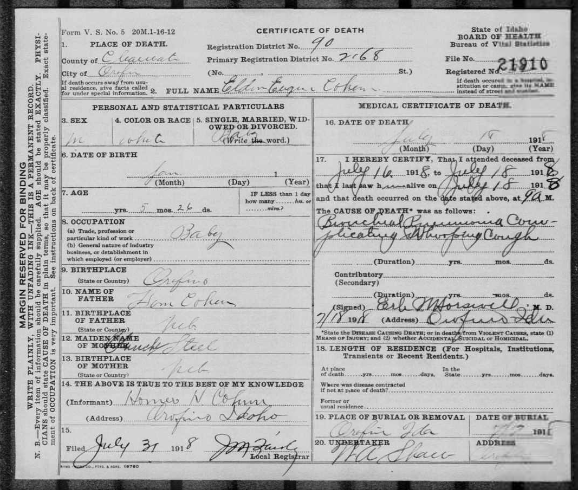 Form V. S. No. 5 20M.1-16-12
CERTIFICATE OF DEATH
State of Idaho
BOARD OF HEALTH
Bureau of Vital Statistics
1. PLACE OF DEATH.
Registration District No. 90
County of Clearwater
Primary Registration District No. 2168
File No.
21910
City of Orofino
(No. St.)
Registered No.
If death occurs away from usual residence, give facts called for under special information.
If death occurred in a hospital, institution or camp, give its NAME instead of street and number.
2. FULL NAME Eldin Eugene Cohen
PERSONAL AND STATISTICAL PARTICULARS
3. SEX
4. COLOR OR RACE
5. SINGLE, MARRIED, WIDOWED OR DIVORCED.
(Write the word.)
m white Baby
6. DATE OF BIRTH
Jan 1
(Month) (Day) (Year)
7. AGE
IF LESS than 1 day
how many hrs. or min.?
yrs. 5 mos. 26 ds.
8. OCCUPATION
(a) Trade, profession or particular kind of work
Baby
(b) General nature of industry, business, or establishment in which employed (or employer)
9. BIRTHPLACE
(State or Country) Orofino
10. NAME OF FATHER Hom Cohen
11. BIRTHPLACE OF FATHER
(State or Country) Neb
12. MAIDEN NAME OF MOTHER Steel
13. BIRTHPLACE OF MOTHER
(State or Country) Neb
14. THE ABOVE IS TRUE TO THE BEST OF MY KNOWLEDGE
(Informant) Homer H Cohen
(Address) Orofino Idaho
15.
Filed July 31 1918
Local Registrar
MEDICAL CERTIFICATE OF DEATH.
16. DATE OF DEATH
July 18 1918
(Month) (Day) (Year)
17. I HEREBY CERTIFY, That I attended deceased from
July 16 1918 to July 18 1918
that I last saw h alive on July 18 1918
and that death occurred on the date stated above, at 9 A M.
The CAUSE OF DEATH* was as follows:
Bronchial Pneumonia Complicating Whooping Cough
(Duration) yrs. mos. ds.
Contributory
(Secondary)
(Duration) yrs. mos. ds.
(Signed) Earle M. D.
7/18 1918 (Address) Orofino Ida
*State the DISEASE CAUSING DEATH; or in deaths from VIOLENT CAUSES, state (1) MEANS OF INJURY; and (2) whether ACCIDENTAL, SUICIDAL or HOMICIDAL.
18. LENGTH OF RESIDENCE (For Hospitals, Institutions, Transients or Recent Residents.)
At place of death yrs. mos. days. In the State yrs. mos. days
Where was disease contracted if not at place of death?
Former or usual residence
19. PLACE OF BURIAL OR REMOVAL
DATE OF BURIAL
Orofino Ida 191
20. UNDERTAKER
ADDRESS
W A Shaw
MARGIN RESERVED FOR BINDING
WRITE PLAINLY, WITH UNFADING INK—THIS IS A PERMANENT RECORD.
N. B.—Every item of information should be carefully supplied. AGE should be stated EXACTLY. PHYSICIANS should state CAUSE OF DEATH in plain terms, so that it may be properly classified. Exact statement of OCCUPATION is very important. See instructions on back of certificate.